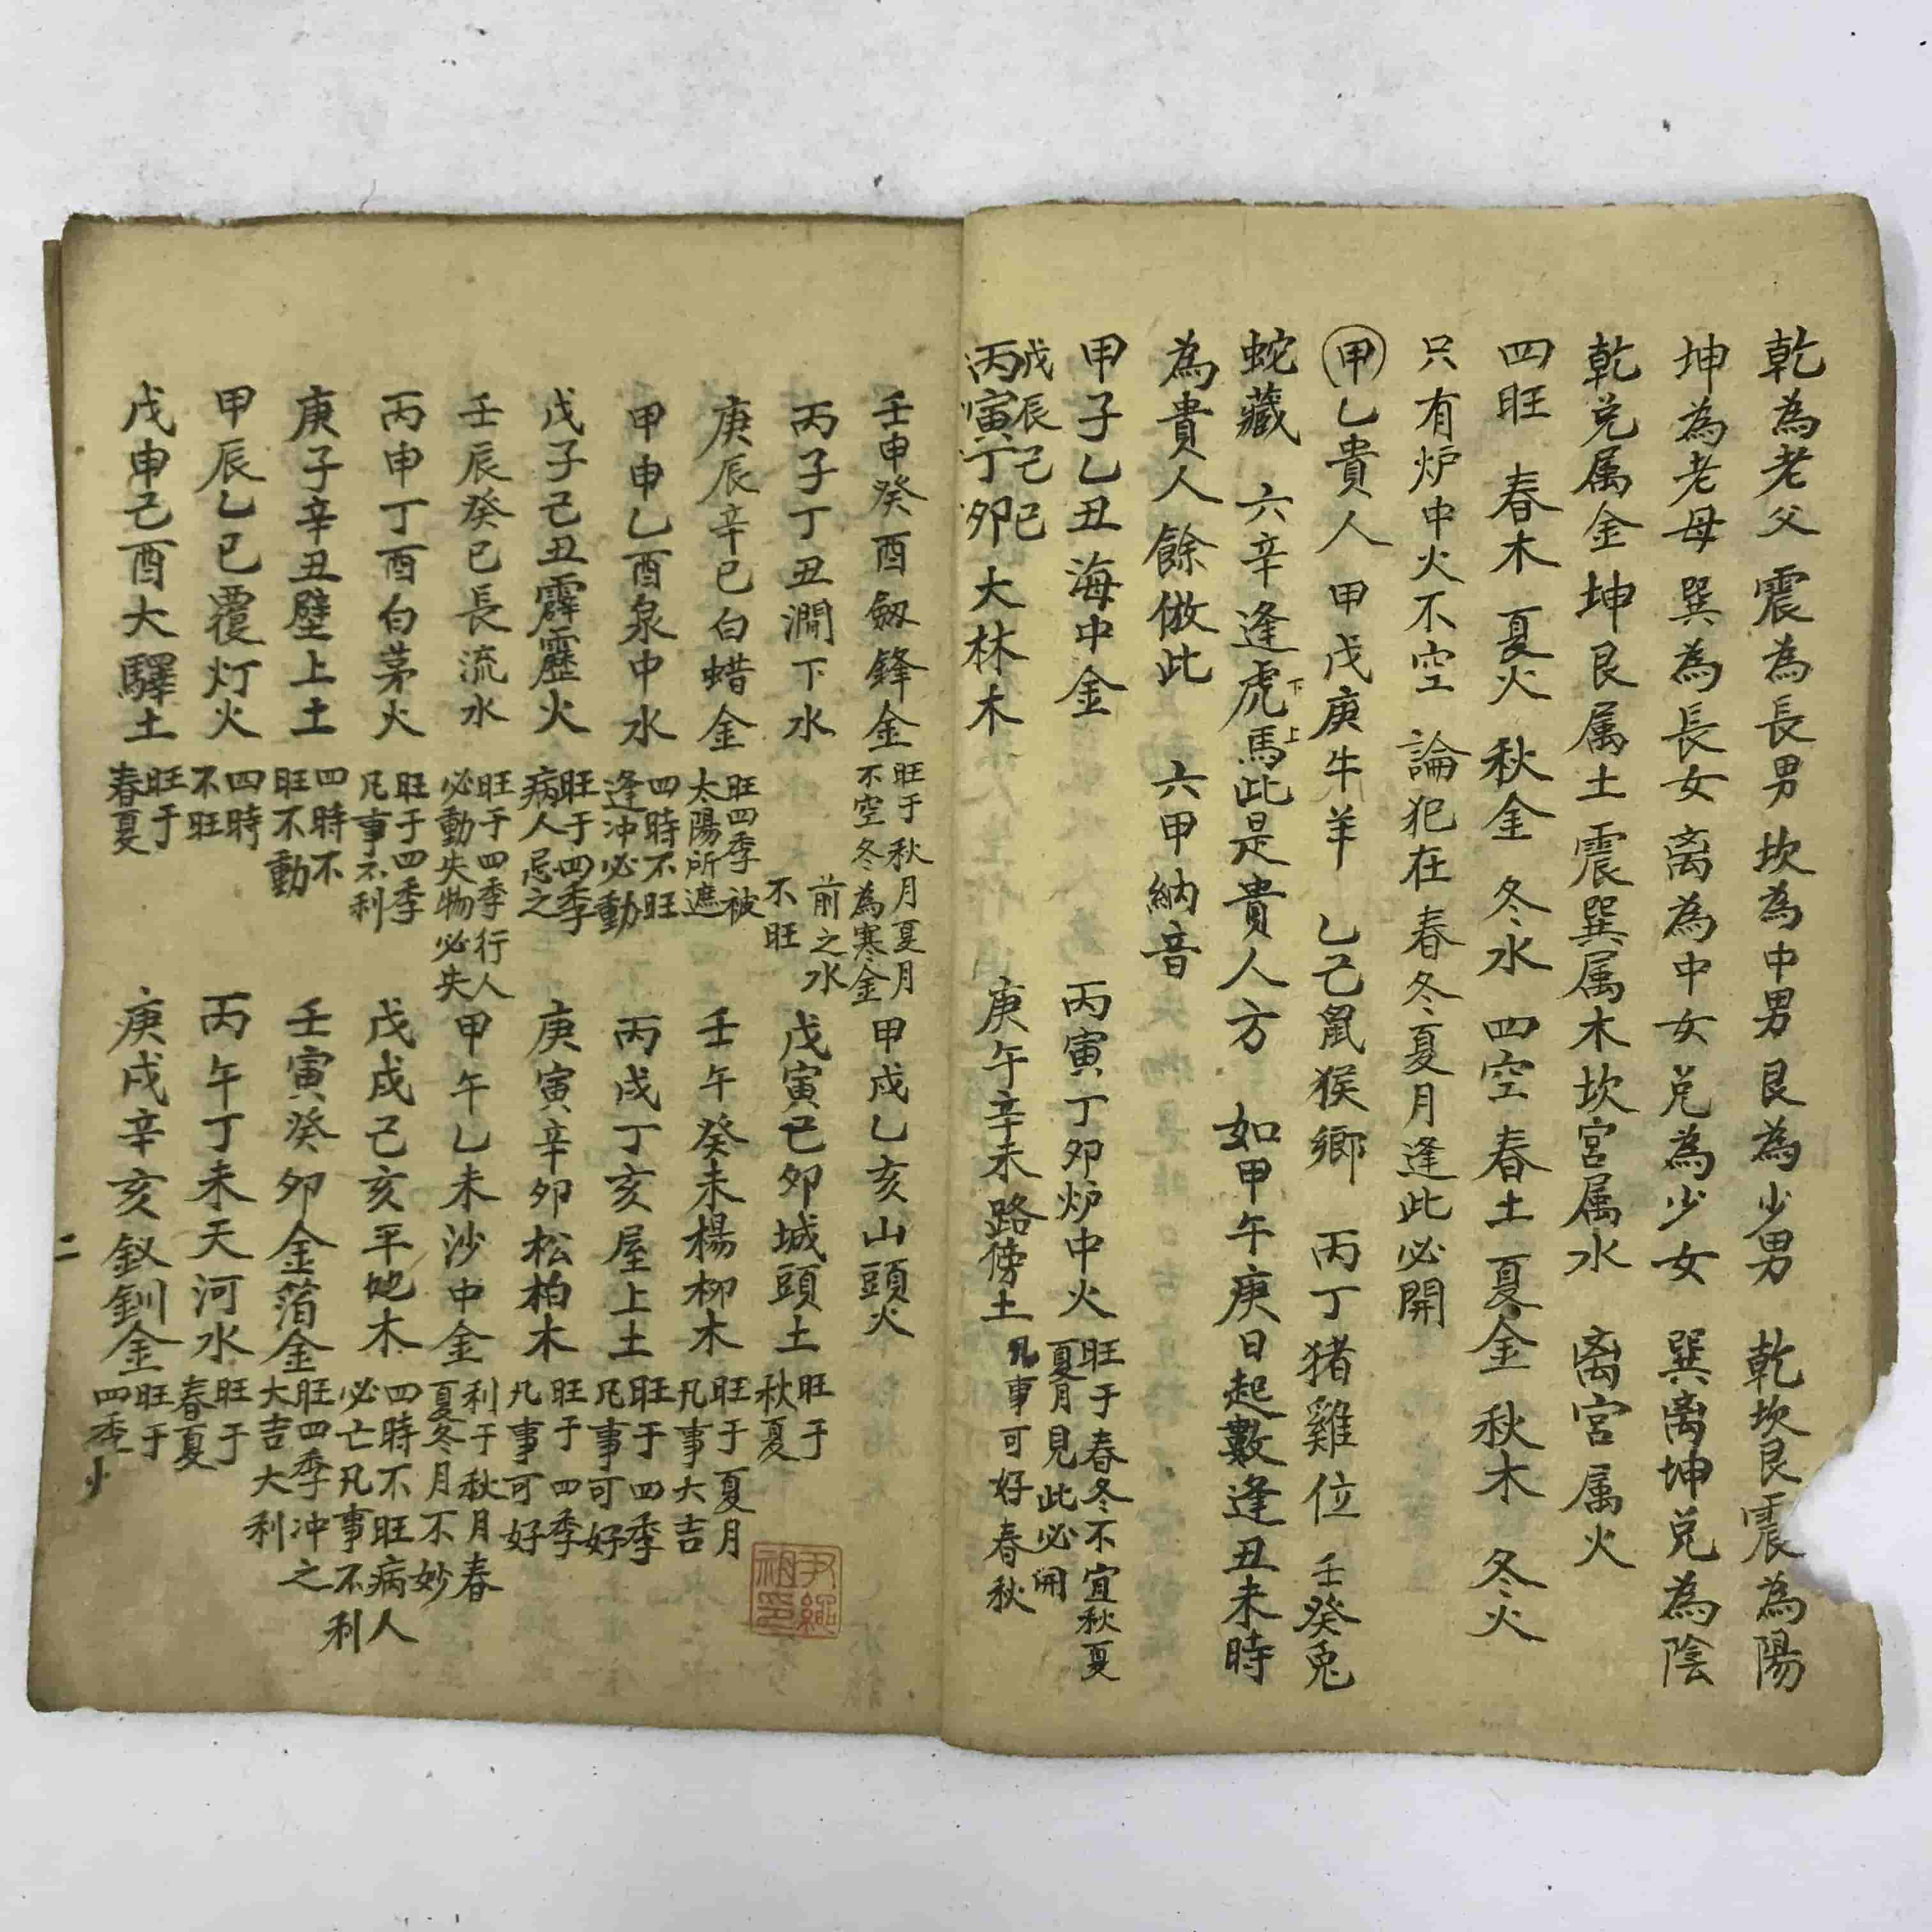 乾為老父 震為長男 坎為中男 艮為少男 乾坎艮震為陽
坤為老母 巽為長女 离為中女 兑為少女 巽离坤兑為陰
乾兑属金 坤艮属土 震巽属木 坎宮属水 离宮属火
四旺 春木 夏火 秋金 冬水 四空 春土 夏金 秋木 冬火
只有炉中火不空 論犯在春冬夏月逢此必開
甲乙貴人 甲戊庚牛羊 乙己鼠猴鄉 丙丁猪雞位 壬癸兎
蛇藏 六辛逢虎下馬上此是貴人方 如甲午庚日起數逢丑未時
為貴人餘倣此 六甲納音
甲子乙丑海中金 丙寅丁卯炉中火 旺于春冬不宜秋夏
夏月見此必開
戊辰己巳
丙寅丁卯大林木 庚午辛未路傍土 凡事可好春秋
壬申癸酉劔鋒金 旺于秋月夏月
不空冬為寒金 甲戌乙亥山頭火
丙子丁丑澗下水 前之水
不旺 戊寅己卯城頭土 旺于
秋夏
庚辰辛巳白蜡金 旺四季被
太陽所遮 壬午癸未楊柳木 旺于夏月
凡事大吉
甲申乙酉泉中水 四時不旺
逢冲必動 丙戌丁亥屋上土 旺于四季
凡事可好
戊子己丑霹靂火 旺于四季
病人忌之 庚寅辛卯松柏木 旺于四季
凡事可好
壬辰癸巳長流水 旺于四季行人
必動失物必失 甲午乙未沙中金 利于秋月春
夏冬月不妙
丙申丁酉白茅火 旺于四季
凡事不利 戊戌己亥平地木 四時不旺病人
必亡凡事不利
庚子辛丑壁上土 四時不
旺不動 壬寅癸卯金箔金 旺四季冲之
大吉大利
甲辰乙巳覆灯火 四時
不旺 丙午丁未天河水 旺于
春夏
戊申己酉大驛土 旺于
春夏 庚戌辛亥釵釧金 旺于
四季
二
尹繩
祖印